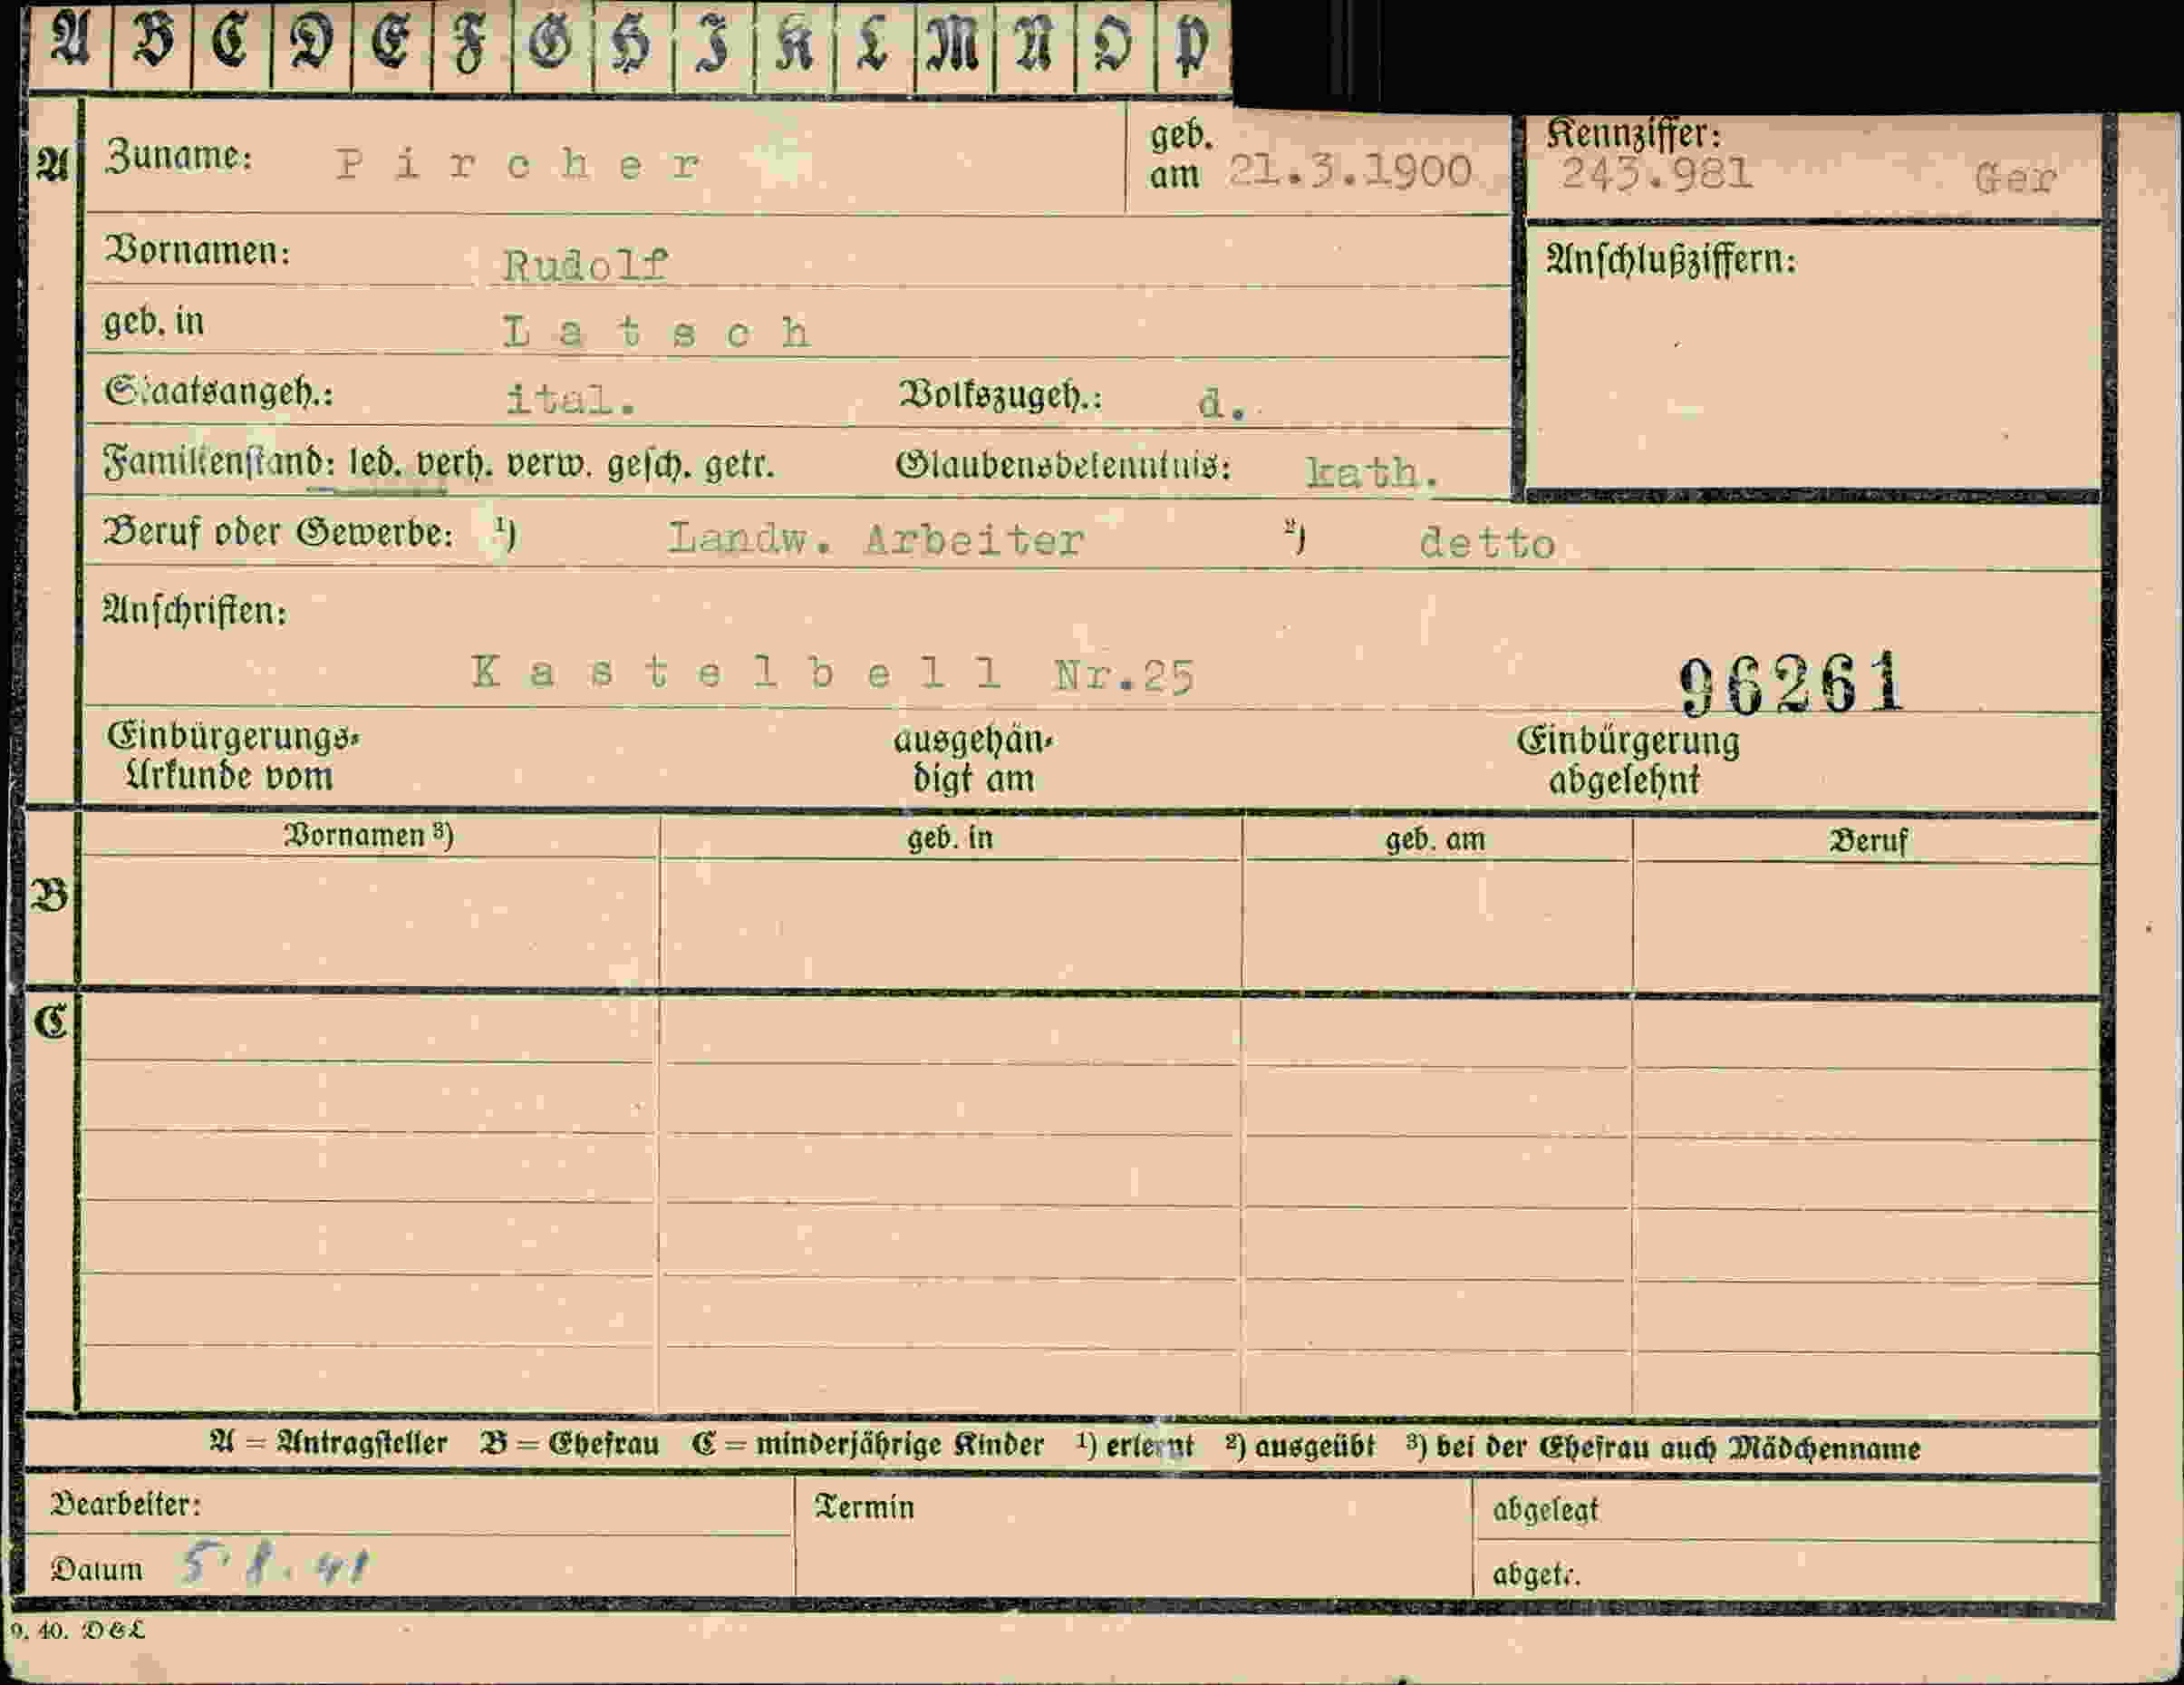 A B C D E F G H I K L M N O P
A Zuname: Pircher geb. am 21.3.1900 Kennziffer: 243.981 Ger
Vornamen: Rudolf Anschlußziffern:
geb. in Latsch
Staatsangeh.: ital. Volkszugeh.: d.
Familienstand: led. verh. verw. gesch. getr. Glaubensbekenntnis: kath.
Beruf oder Gewerbe: 1) Landw. Arbeiter 2) detto
Anschriften:
Kastelbell Nr.25 96261
Einbürgerungs- ausgehän- Einbürgerung
Urkunde vom digt am abgelehnt
Vornamen 3) geb. in geb. am Beruf
B
C
A = Antragsteller B = Ehefrau C = minderjährige Kinder 1) erlernt 2) ausgeübt 3) bei der Ehefrau auch Mädchenname
Bearbeiter: Termin abgelegt
Datum 5.8.41 abgetr.
9. 40. D&L